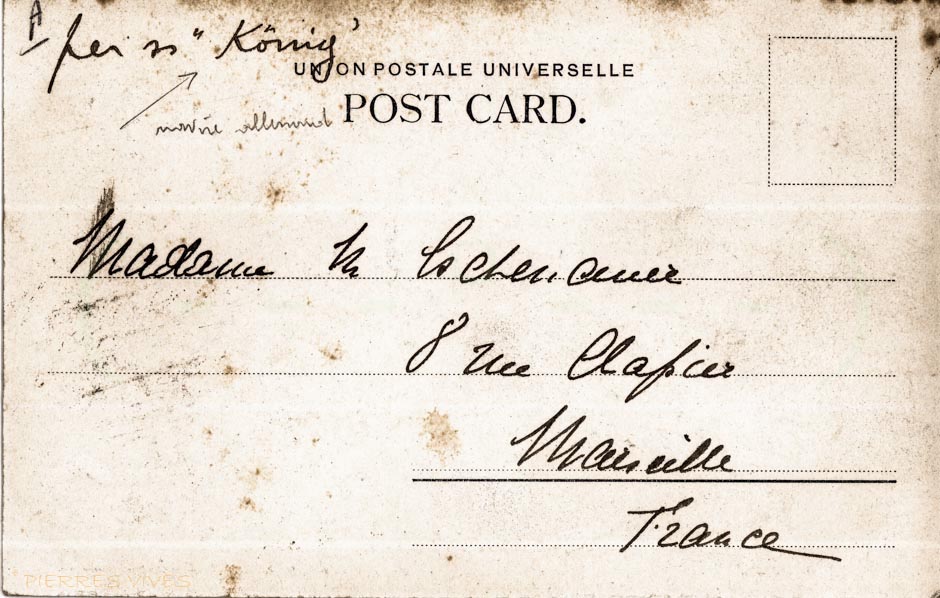 A
per ss "König"
UNION POSTALE UNIVERSELLE
navire allemand
POST CARD.
Madame M
8 rue Clapier
Marseille
France
PIERRES VIVES